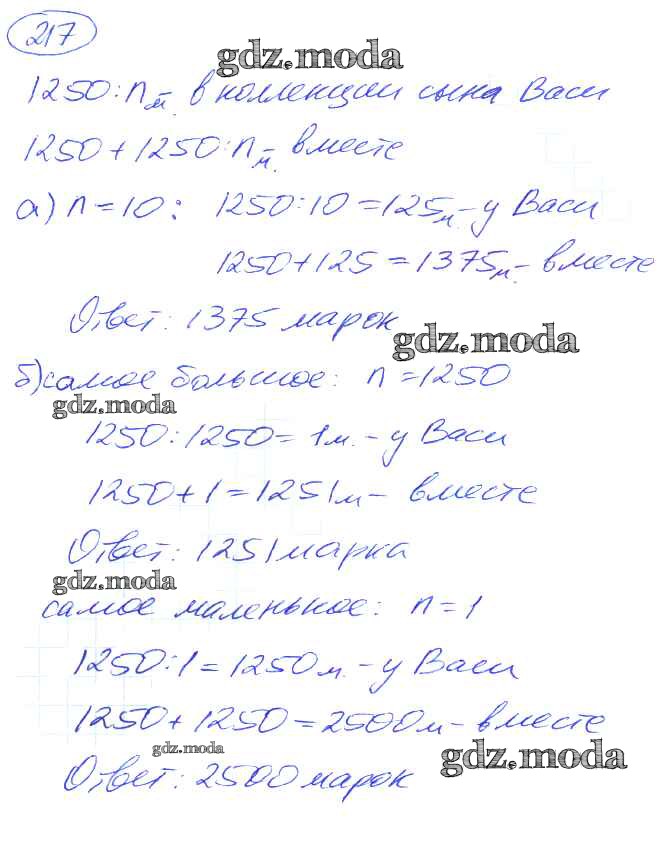 217
gdz.moda
1250:n м. - в коллекции сына Васи
1250+1250:n м. - вместе
а) n=10: 1250:10=125м.-у Васи
1250+125=1375м.-вместе
Ответ: 1375 марок
gdz.moda
б) самое большое: n=1250
gdz.moda
1250:1250=1м.-у Васи
1250+1=1251м- вместе
Ответ: 1251 марка
gdz.moda
самое маленькое: n=1
1250:1=1250м.-у Васи
1250+1250=2500м-вместе
gdz.moda
gdz.moda
Ответ: 2500 марок